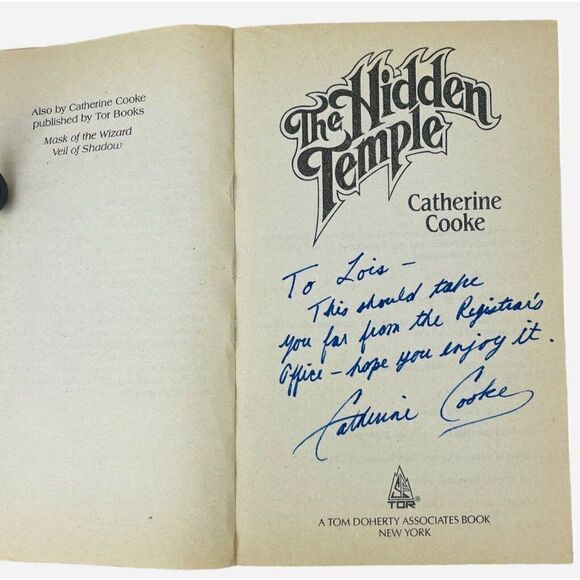 Also by Catherine Cooke
published by Tor Books
Mask of the Wizard
Veil of Shadow
The Hidden
Temple
Catherine
Cooke
To Lois –
This should take
you far from the Registrar's
Office – hope you enjoy it.
Catherine Cooke
TOR®
A TOM DOHERTY ASSOCIATES BOOK
NEW YORK